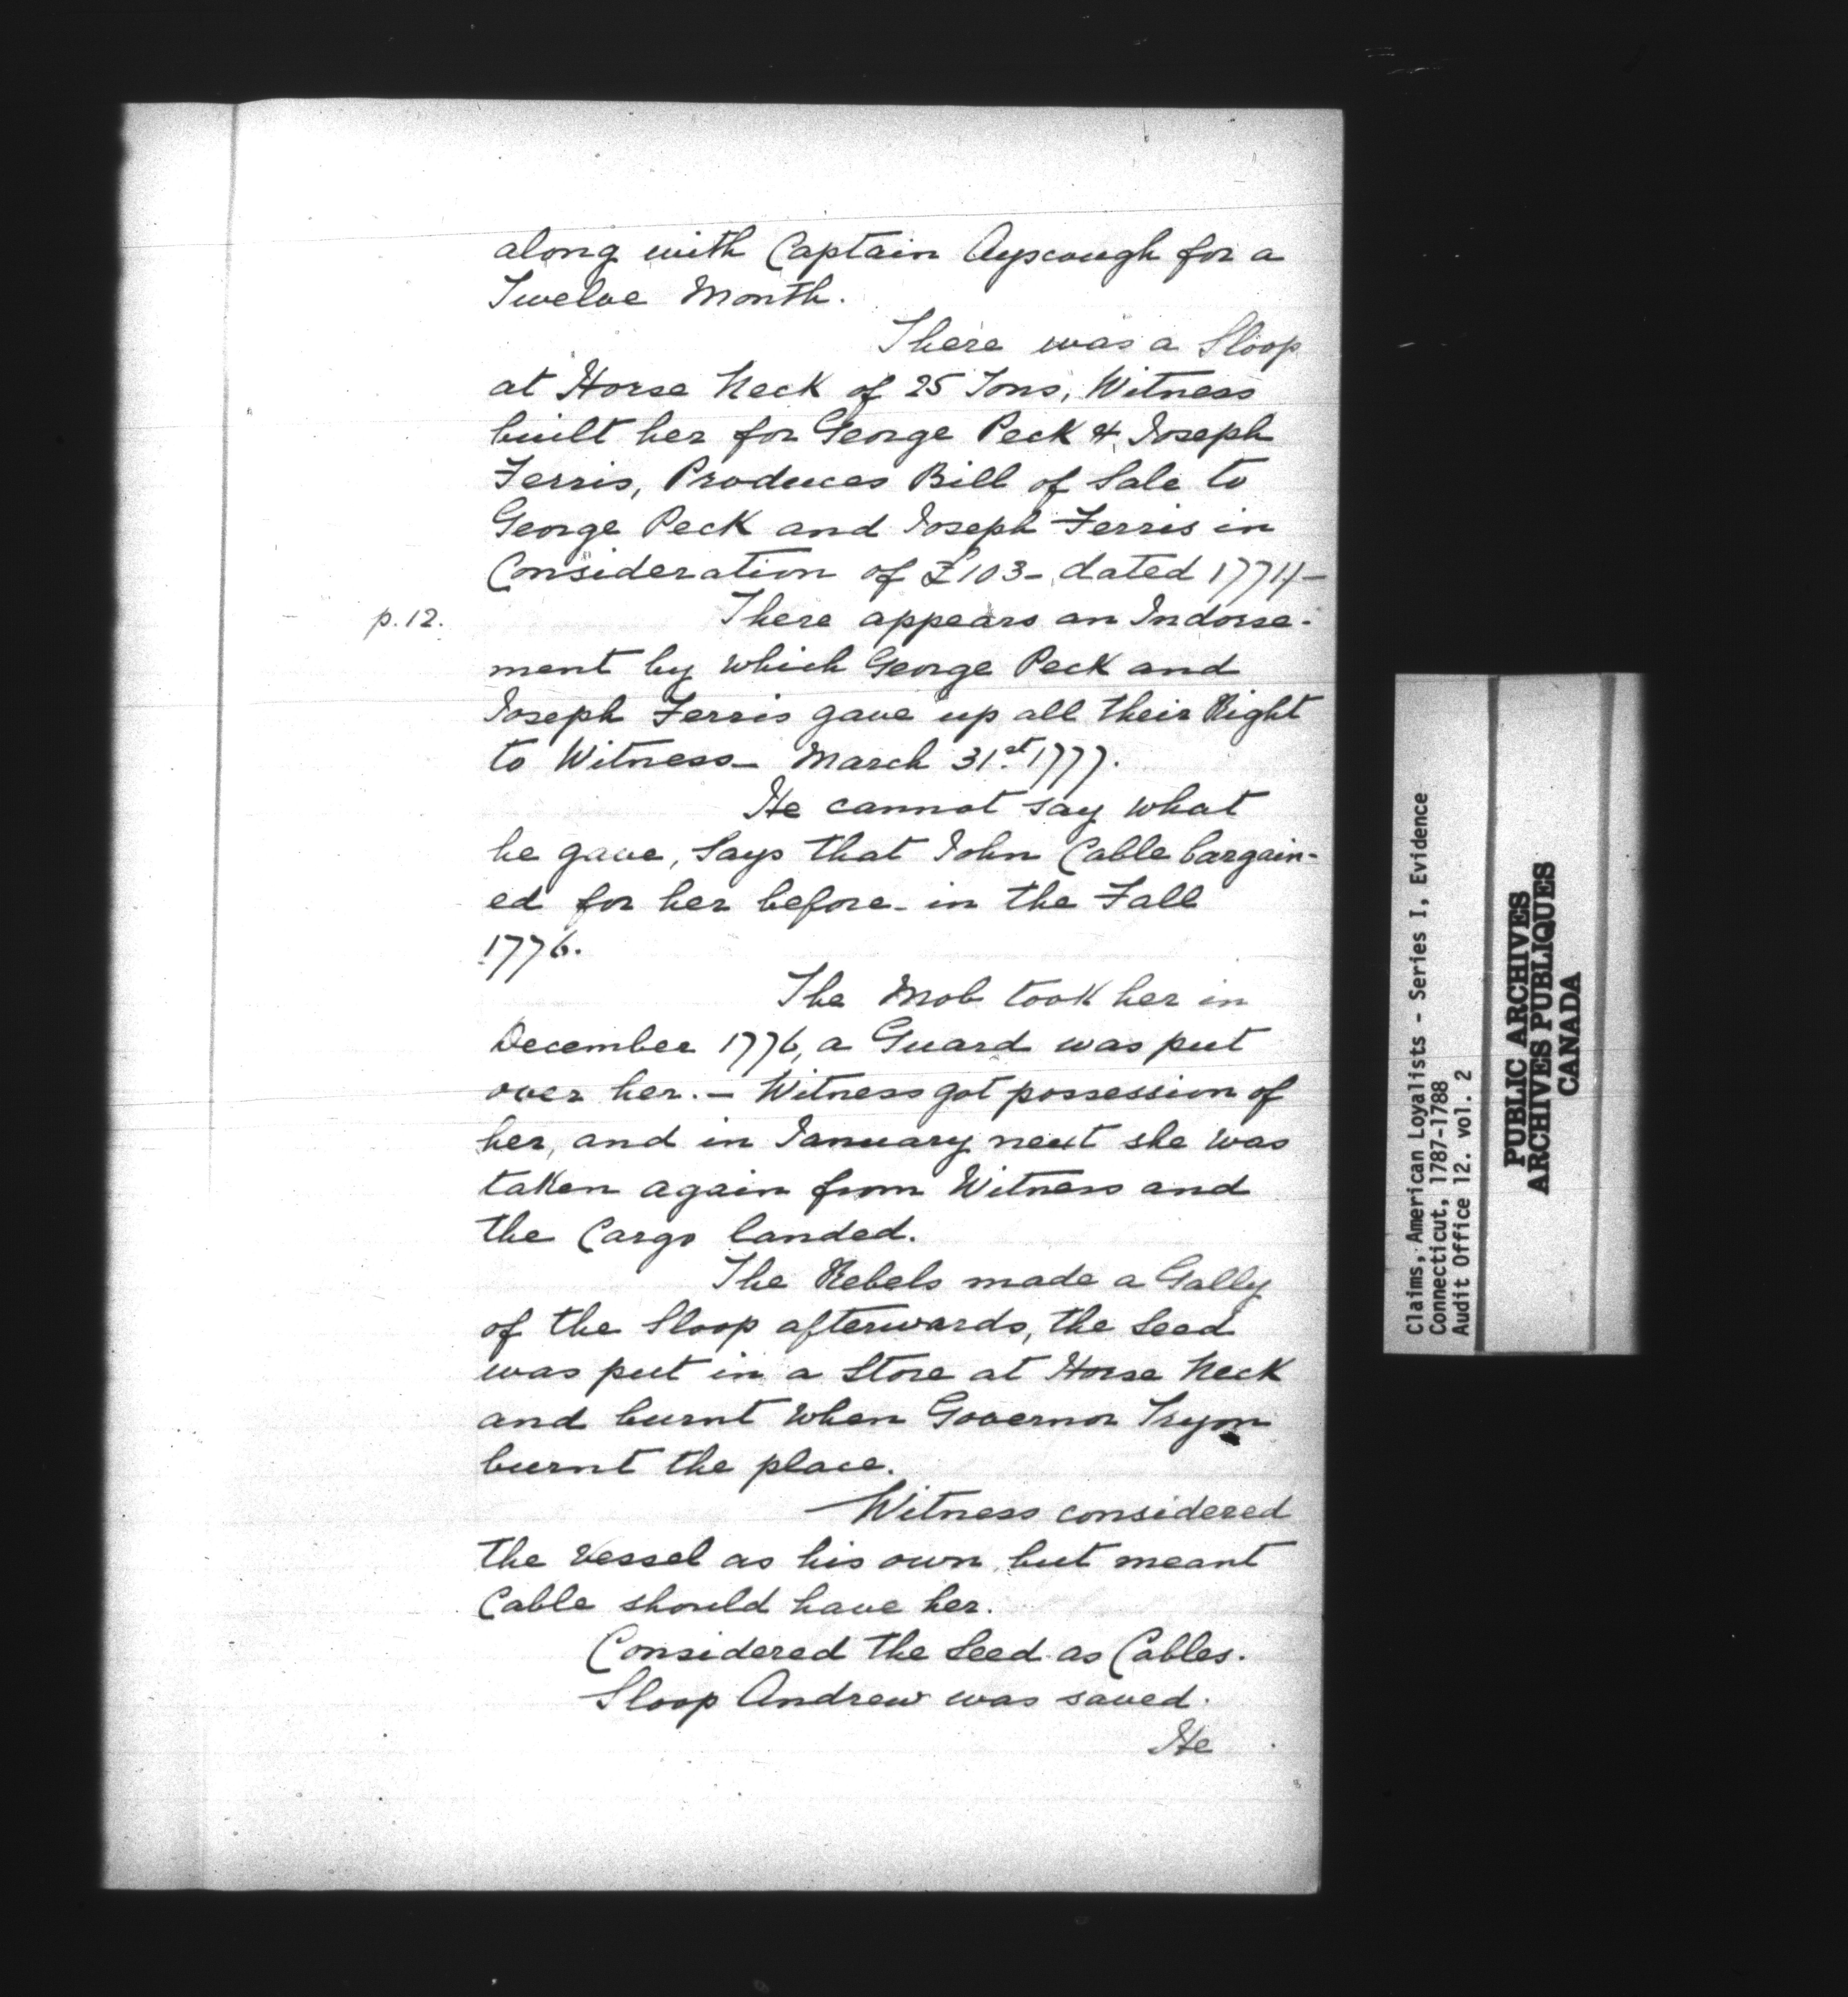 along with Captain Ayscough for a
Twelve Month.
There was a Sloop
at Horse Neck of 25 Tons, Witness
built her for George Peck & Joseph
Ferris, Produces Bill of Sale to
George Peck and Joseph Ferris in
Consideration of £103- dated 1774-
p.12.
There appears an Indorse-
ment by which George Peck and
Joseph Ferris gave up all their Right
to Witness- March 31st 1777.
He cannot say what
he gave, Says that John Cable bargain-
ed for her before- in the Fall
1776.
The Mob took her in
December 1776, a Guard was put
over her. - Witness got possession of
her, and in January next she was
taken again from Witness and
the Cargo landed.
The Rebels made a Gally
of the Sloop afterwards, the Seed
was put in a Store at Horse Neck
and burnt when Governor Tryon
burnt the place.
Witness considered
the Vessel as his own but meant
Cable should have her.
Considered the Seed as Cables.
Sloop Andrew was saved.
He
Claims, American Loyalists - Series I, Evidence
Connecticut, 1787-1788
Audit Office 12. vol. 2
PUBLIC ARCHIVES
ARCHIVES PUBLIQUES
CANADA